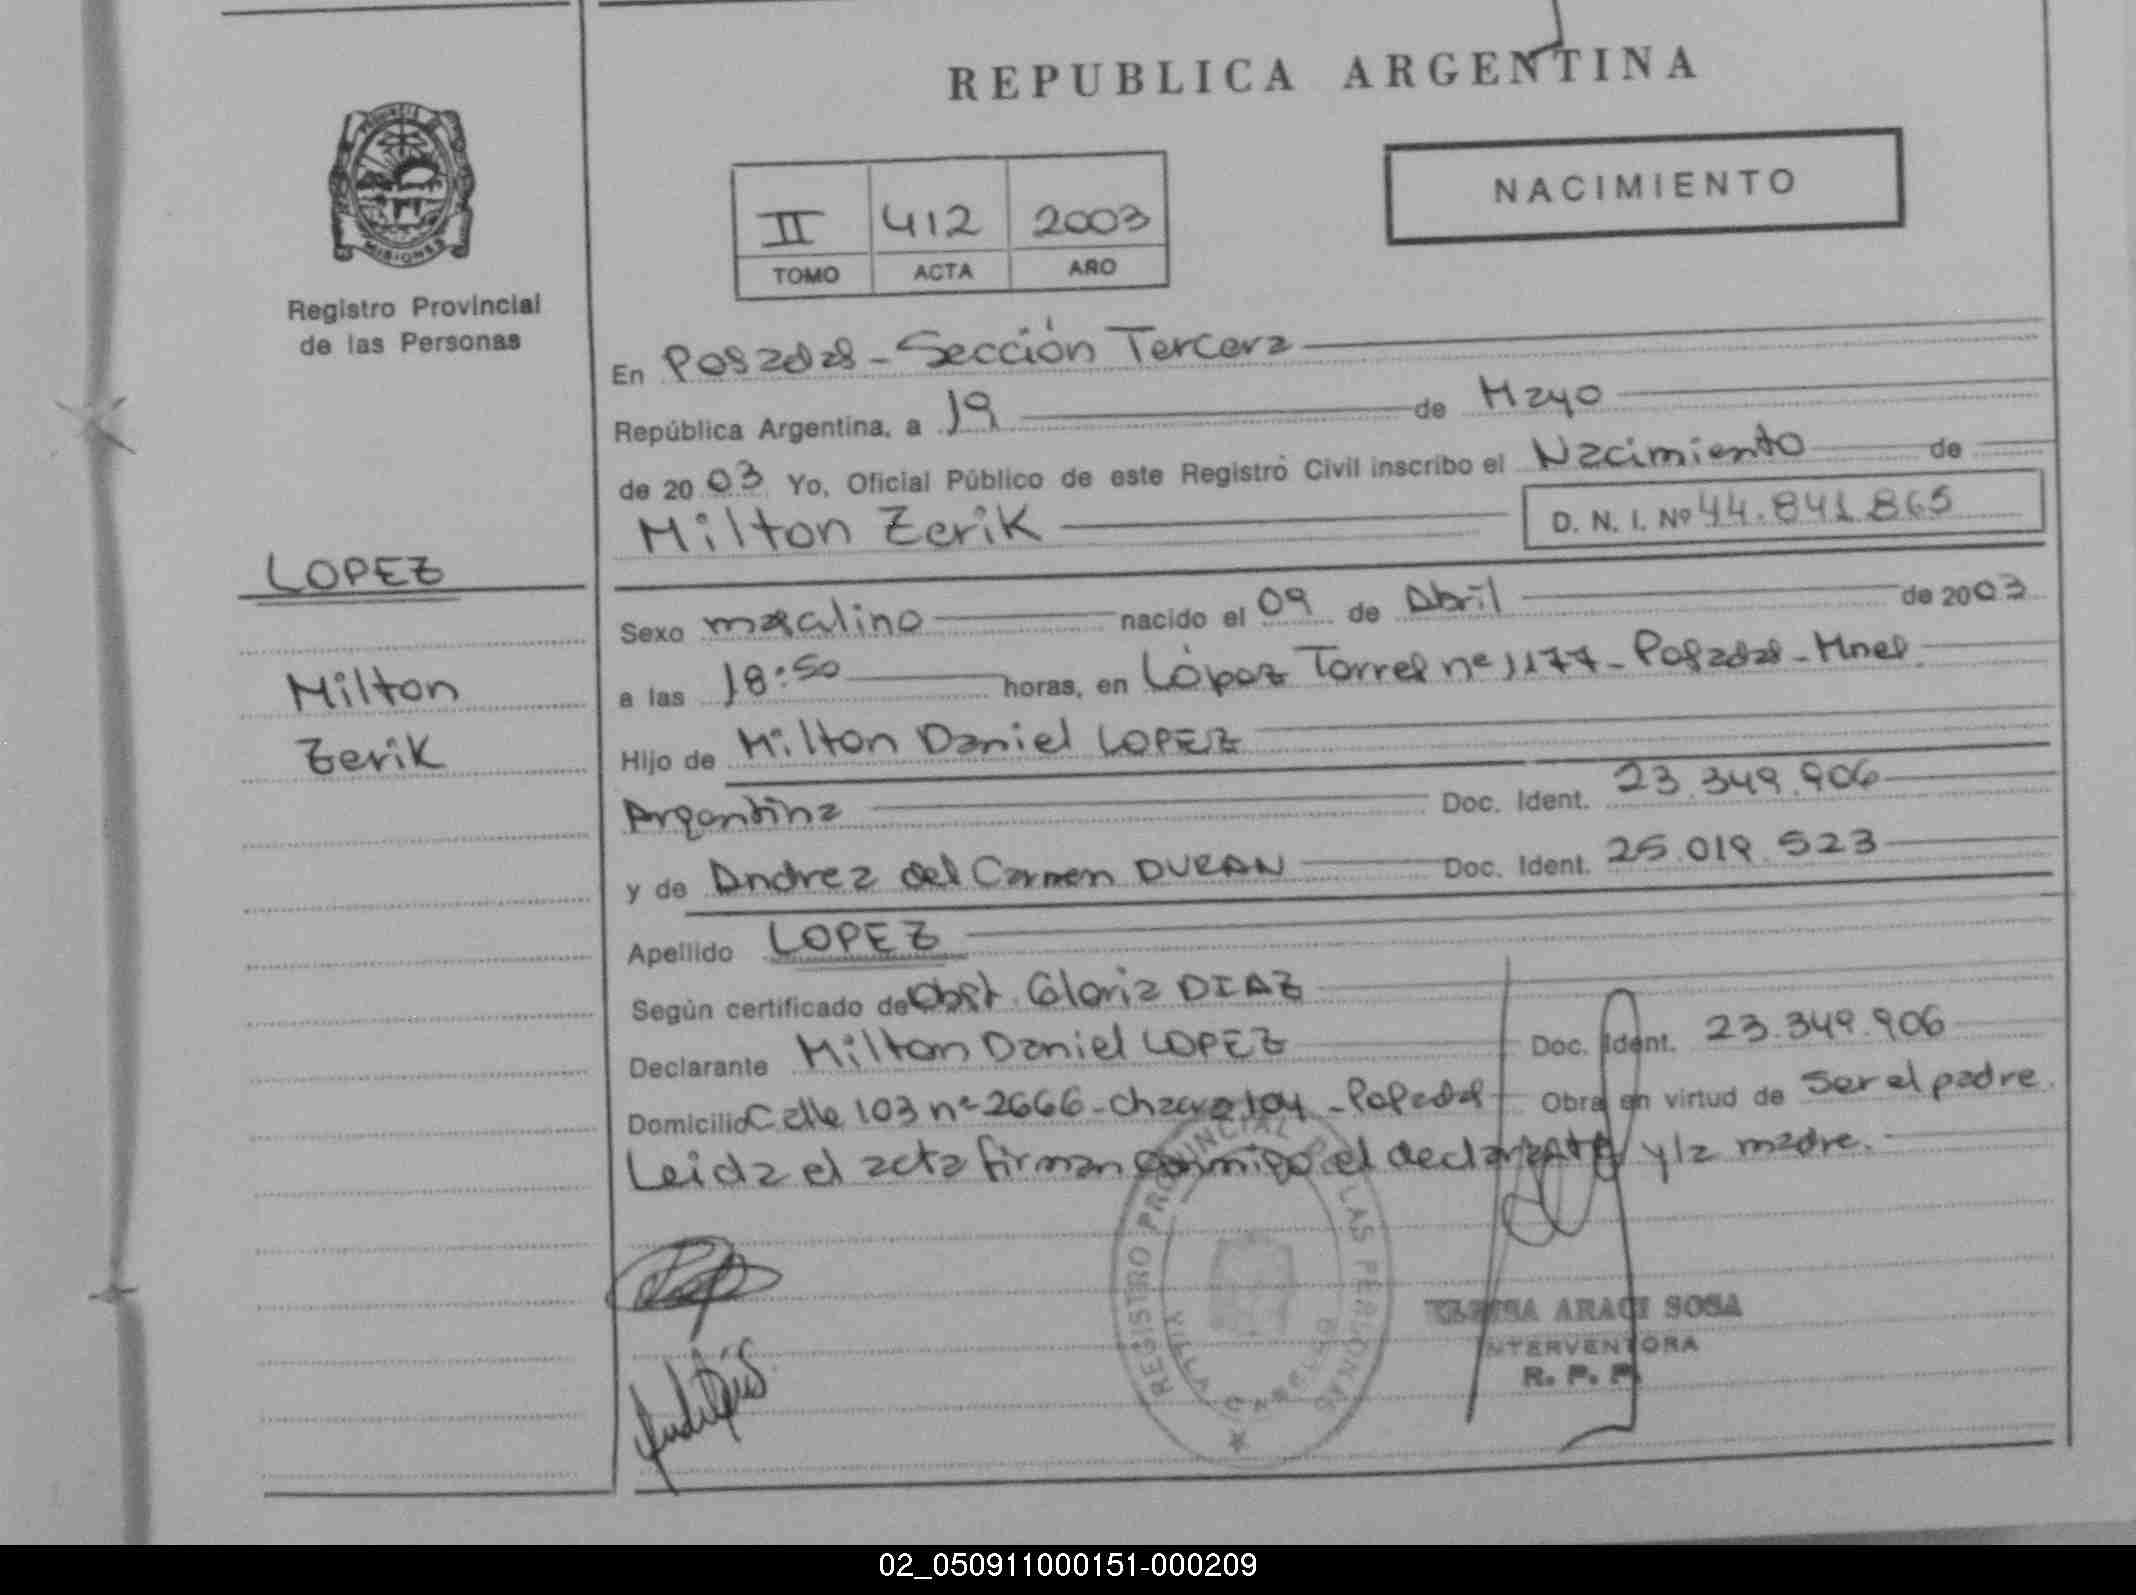 REPUBLICA ARGENTINA
NACIMIENTO
II 412 2003
TOMO ACTA AÑO
PROVINCIA DE
MISIONES
Registro Provincial
de las Personas
LOPEZ
Milton
Zerik
En Posadas - Sección Tercera
República Argentina, a 19 de Mayo
de 2003 Yo, Oficial Público de este Registro Civil inscribo el Nacimiento de
Milton Zerik D. N. I. Nº 44.841.865
Sexo masculino nacido el 09 de Abril de 2003
a las 18:50 horas, en López Torres nº 1177 - Posadas - Mnes.
Hijo de Milton Daniel LOPEZ
Argentina Doc. Ident. 23.349.906
y de Andrea del Carmen DURAN Doc. Ident. 25.019.523
Apellido LOPEZ
Según certificado de Obst. Gloria DIAZ
Declarante Milton Daniel LOPEZ Doc. Ident. 23.349.906
Domicilio Calle 103 nº 2666 - Chacra 104 - Posadas Obra en virtud de Ser el padre.
Leida el acta firman conmigo el declarante y la madre.
REGISTRO PROVINCIAL DE LAS PERSONAS
ARACI SOSA
INTERVENTORA
R. P. P.
02_050911000151-000209